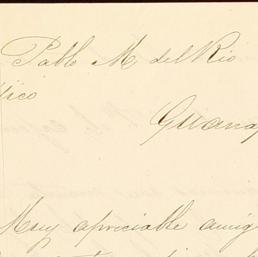 Pablo M. del Rio
xico
Guana
Muy apreciable amig